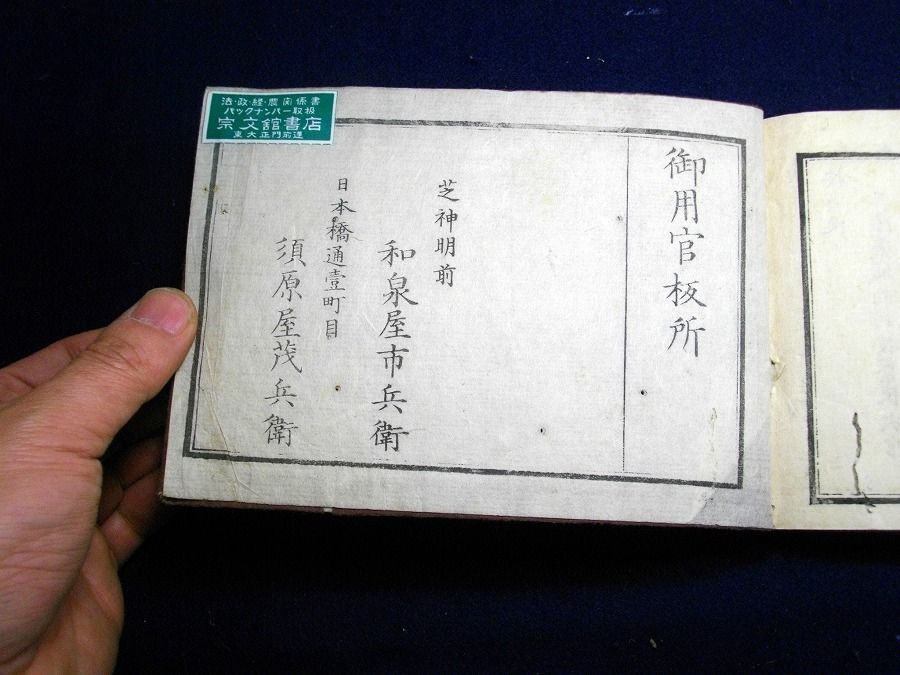 法・政・経・農関係書
バックナンバー取扱
宗文館書店
東大正門前通
御用官板所
芝神明前
和泉屋市兵衛
日本橋通壹町目
須原屋茂兵衛